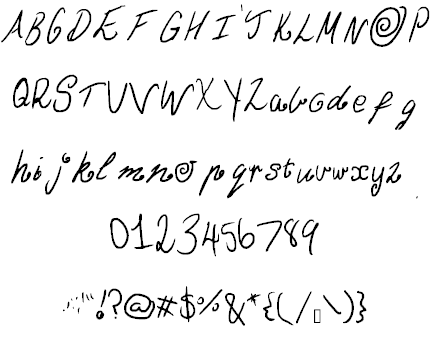 ABCDEFGHIJKLMNOP
QRSTUVWXYZabcdefg
hijklmnopqrstuvwxyz
0123456789
!?@#$%&*{(/\)}